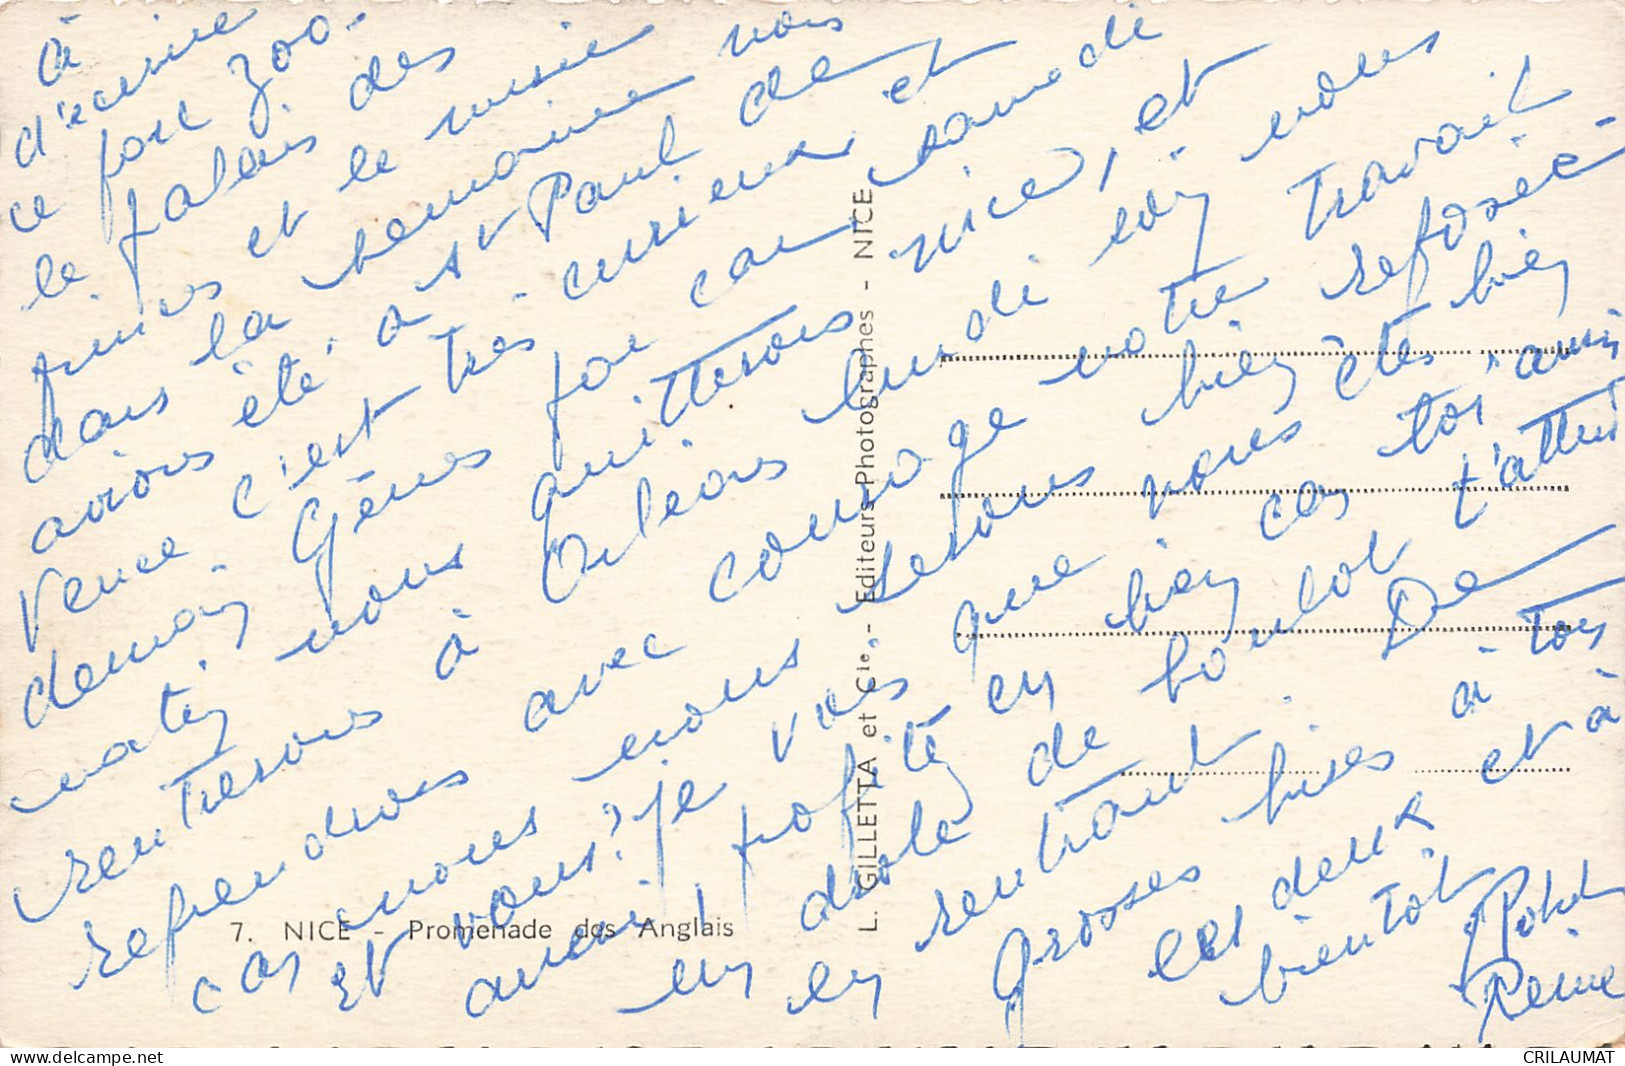 à
d'ecrire
ce joli zoo.
le palais des
princes et le musée
dans la semaine nous
avions été, a St Paul de
Vence c'est très curieux et
demain Gênes car samedi
matin nous quitterons nice, et
rentrerons à Orléans lundi soir nous
reprendrons avec courage notre travail
car nous nous serons bien reposée.
Et vous? je vois que vous êtes bien
aussi, profitez en bien car toi ami
un drole de boulot t'attend
en rentrant. De
Grosses bises à toi
les deux et à
bientôt
Reine
7. NICE - Promenade des Anglais
L. GILLETTA et Cie - Editeurs-Photographes - NICE
CRILAUMAT